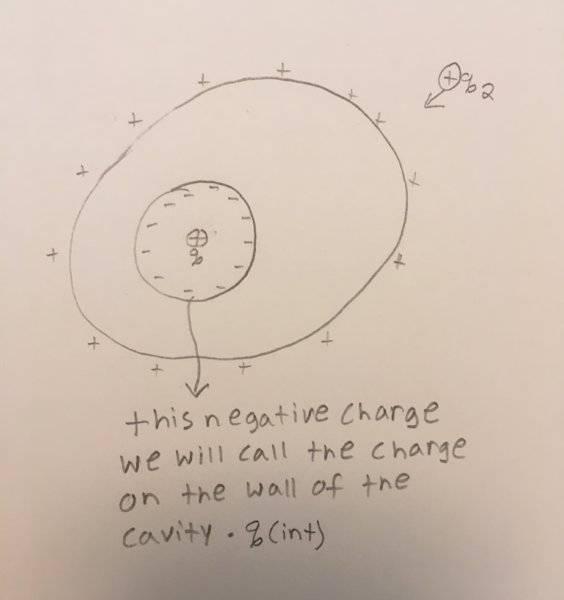 q2
q
this negative charge
we will call the charge
on the wall of the
cavity . q(int)